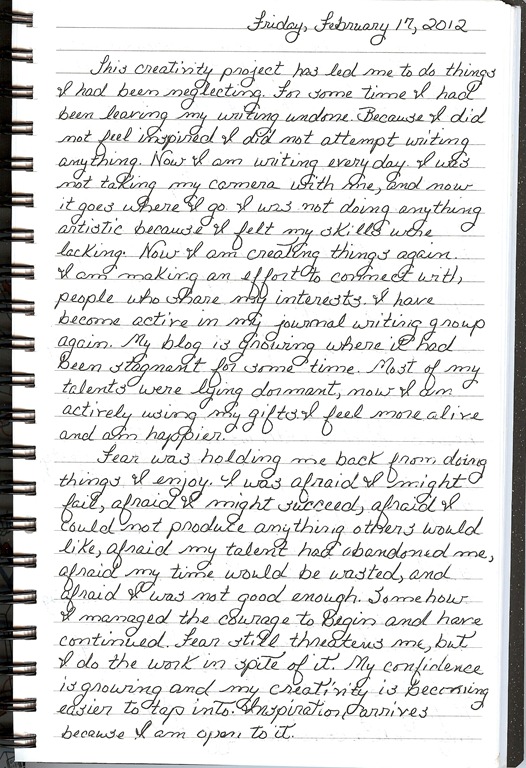 Friday, February 17, 2012
This creativity project has led me to do things
I had been neglecting. For some time I had
been leaving my writing undone. Because I did
not feel inspired I did not attempt writing
anything. Now I am writing every day. I was
not taking my camera with me, and now
it goes where I go. I was not doing anything
artistic because I felt my skills were
lacking. Now I am creating things again.
I am making an effort to connect with
people who share my interests. I have
become active in my journal writing group
again. My blog is growing where it had
been stagnant for some time. Most of my
talents were lying dormant, now I am
actively using my gifts & feel more alive
and am happier.
Fear was holding me back from doing
things I enjoy. I was afraid I might
fail, afraid I might succeed, afraid I
could not produce anything others would
like, afraid my talent had abandoned me,
afraid my time would be wasted, and
afraid I was not good enough. Somehow
I managed the courage to Begin and have
continued. Fear still threatens me, but
I do the work in spite of it. My confidence
is growing and my creativity is becoming
easier to tap into. Inspiration arrives
because I am open to it.